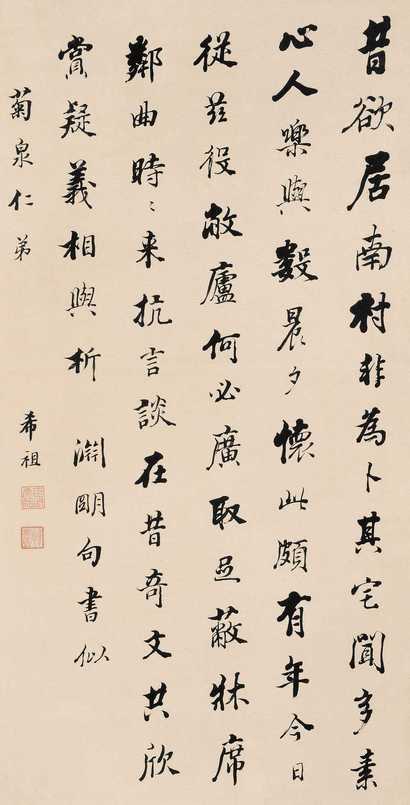 昔欲居南村非為卜其宅聞多素
心人樂與數晨夕懷此頗有年今日
從茲役敝廬何必廣取足蔽牀席
鄰曲時〻来抗言談在昔奇文共欣
賞疑義相與析 淵明句書似
菊泉仁弟
希祖